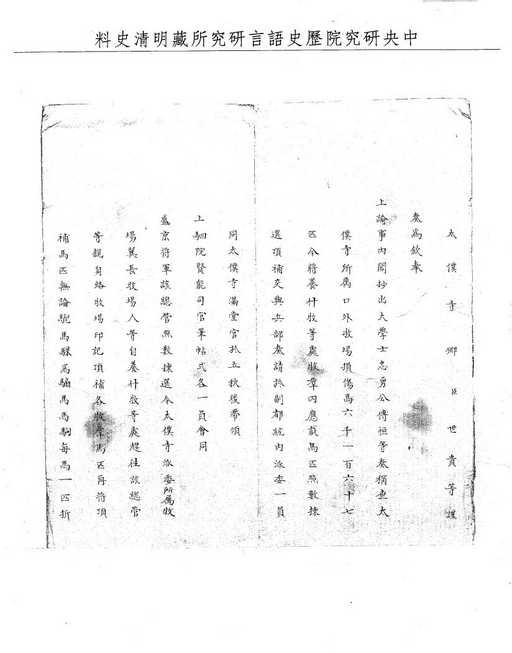 中央研究院歷史語言研究所藏明清史料
太僕寺卿臣世貴等謹
奏為欽奉
上諭事內閣抄出大學士忠勇公傅恒等奏稱查太
僕寺所屬口外牧場項倒馬六千一百六十七
匹今將養什牧等處牧羣內應裁馬匹照數揀
選項補交與兵部奏請派副都統內派委一員
同太僕寺滿堂官孤五秋後帶領
上駟院賢能司官筆帖式各一員會同
盛京將軍該總管照數揀選令太僕寺派委所屬牧
場翼長牧場人等自養什牧等處趕往該總管
等親身給牧場印記項補各牧羣馬匹再將項
補馬匹無論騍馬騸馬馬駒每馬一匹折